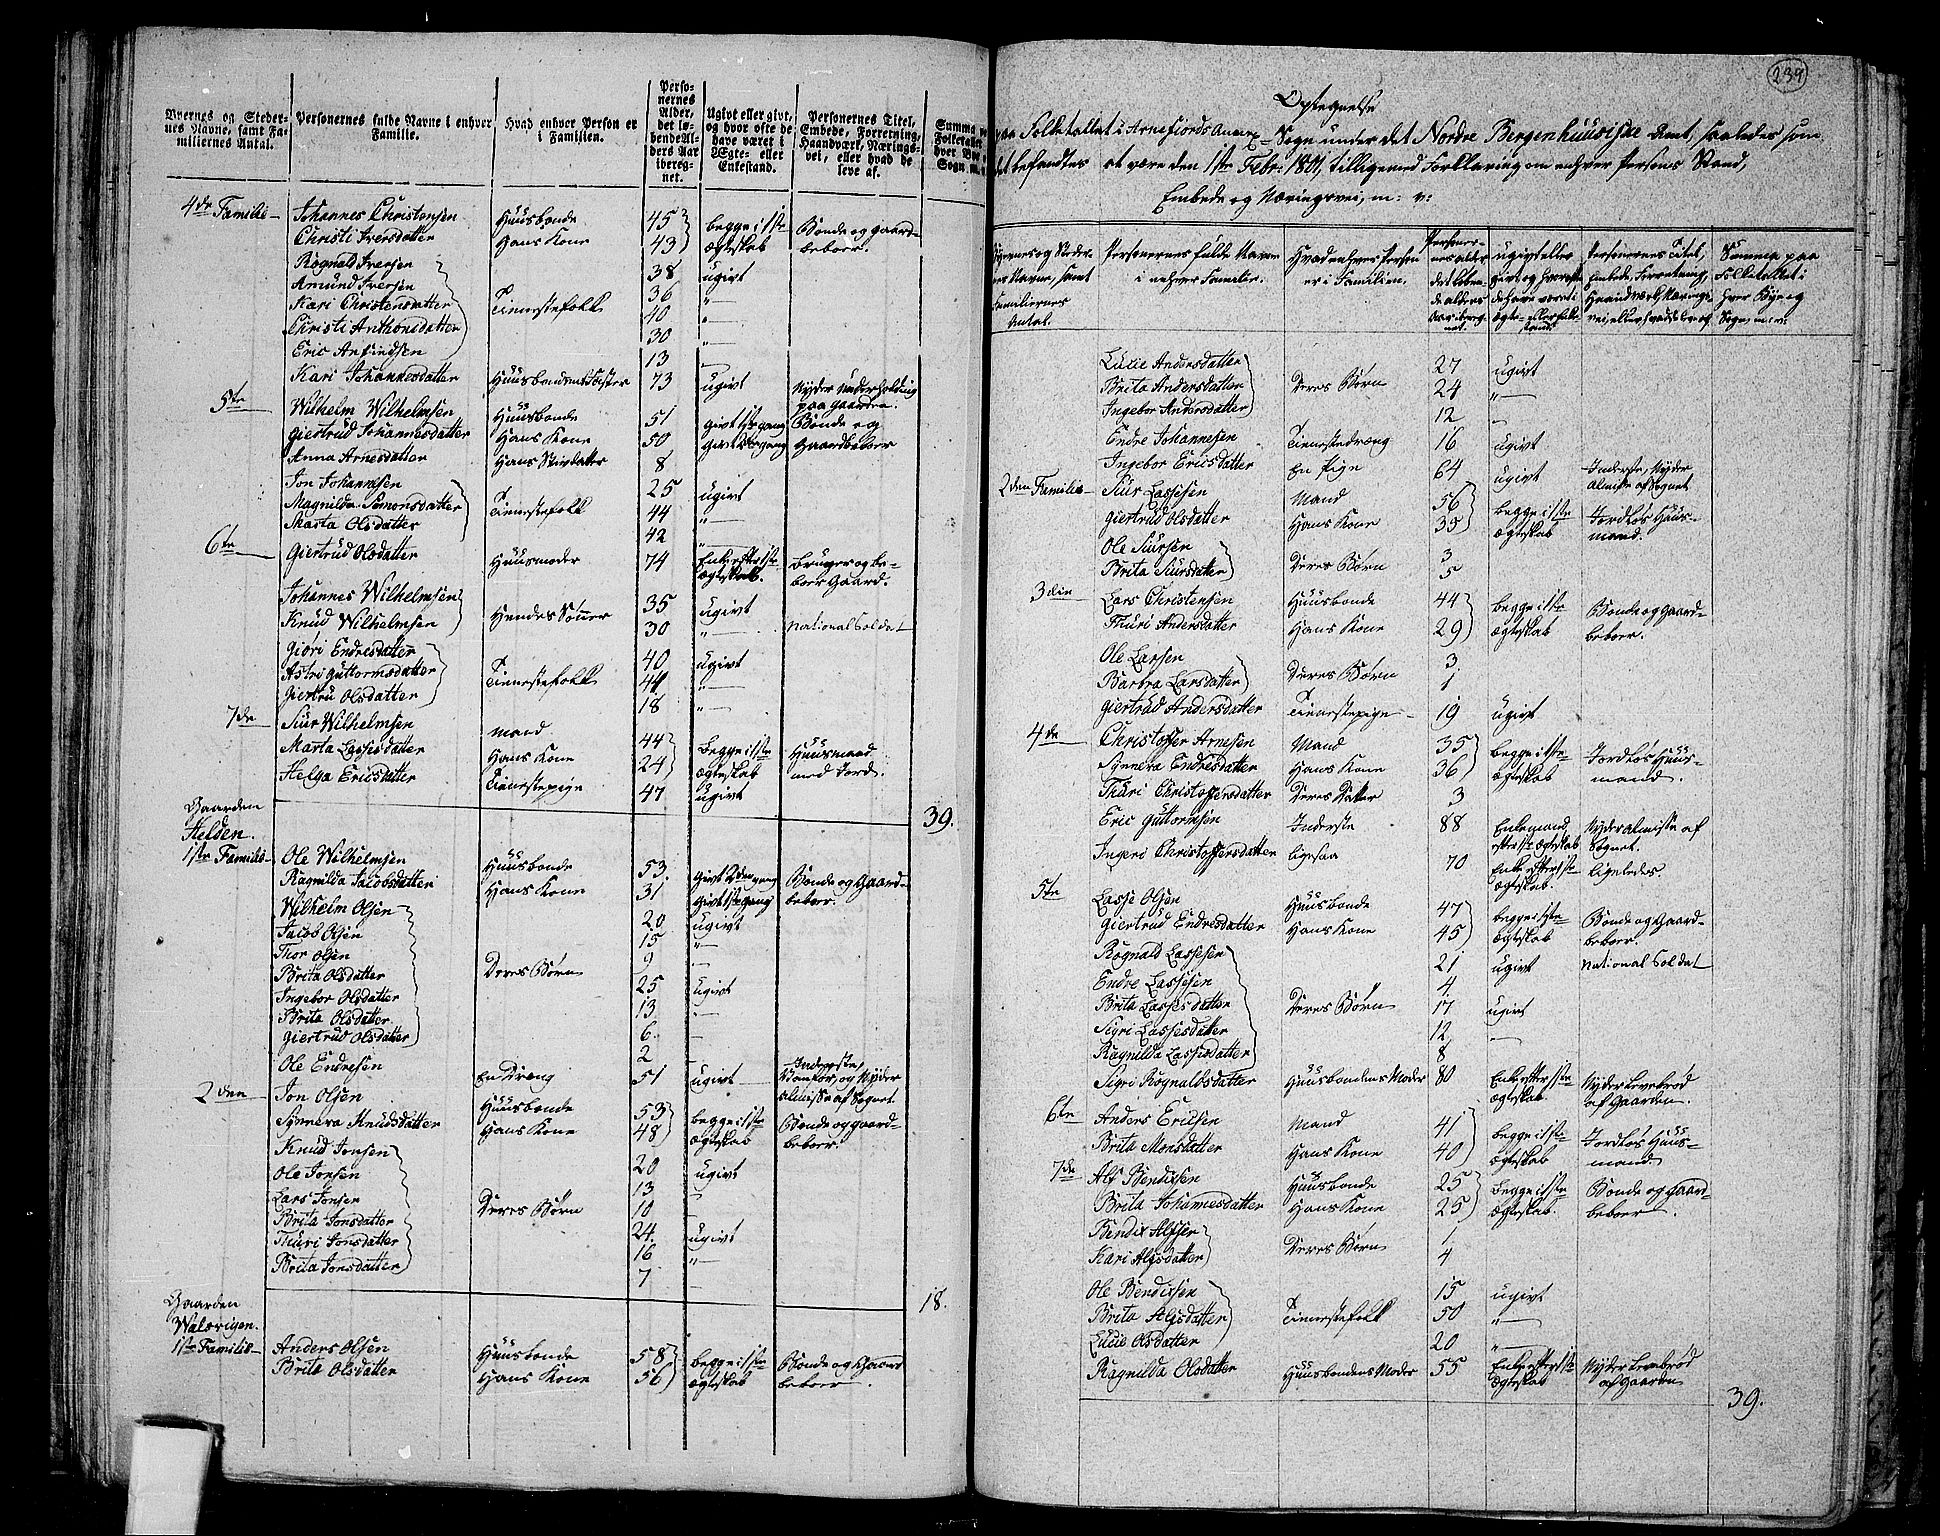 Byernes og Steder-
nes Navne, samt Fa-
miliernes Antal.
Personernes fulde Navne i enhver
Familie.
Hvad enhver Person er
i Familien.
Perso-
nernes
Alder,
det lø-
bende Al-
ders Aar
iberegnet.
Ugivt eller givt,
og hvor ofte de
have været i
Ægte- eller
Enkestand.
Personernes Titel,
Embede, Forretning,
Haandværk, Nærings-
vei, eller hvad de
leve af.
4de Familie Johannes Christensen Huusbonde 45 begge i 1ste Bonde og gaard-
Christi Iversdatter Hans Kone 43 ægteskab beboer
Rognald Iversen 38 ugivt
Amund Iversen 36 "
Kari Christensdatter Tienestefolk 40 "
Christi Anthonsdatter 30 "
Eric Anfindsen 13
Kari Johannesdatter Huusbondens Søster 73 ugivt Nyder underholdning
paa gaarden.
5te Wilhelm Wilhelmsen Huusbonde 51 givt 1ste gang Bonde og
Giertrud Johannesdatter Hans Kone 50 gaardbeboer
Anna Arnesdatter Hans Stivdatter 8
Jon Johannesen 25 ugivt
Magnilda Simonsdatter Tienestefolk 44 "
Marta Olsdatter 42 "
6te Giertrud Olsdatter Huusmoder 74 Enke efter 1ste bruger og be-
ægteskab. boer Gaard.
Johannes Wilhelmsen 35 ugivt
Knud Wilhelmsen Hendes Sønner 30 " National Soldat
Giøri Endresdatter 40 ugivt
Astri Guttormsdatter Tienestefolk 44 "
Giertru Olsdatter 18 "
7de Siur Wilhelmsen Mand 44 begge i 1ste Huusmand
Marta Lassesdatter Hans Kone 24 ægteskab med Jord.
Helga Ericsdatter Tienestepige 47 ugivt
39.
Gaarden
Helden.
1ste Familie Ole Wilhelmsen Huusbonde 53. givt 2den gang Bonde og Gaard-
Ragnilda Jacobsdatter Hans Kone 31 givt 1ste gang beboer.
Wilhelm Olsen 20 ugivt
Jacob Olsen 15 "
Thor Olsen 9
Brita Olsdatter Deres Børn 25 ugivt
Ingebor Olsdatter 13
Brita Olsdatter 6.
Giertrud Olsdatter 2
Ole Endresen En Dreng 51 ugivt Inderste,
Vanfør, og Nyder
almisse af Sognet.
2den Jon Olsen Huusbonde 53 begge i 1ste Bonde og gaard-
Synneva Knudsdatter Hans Kone 48 ægteskab beboer.
Knud Jonsen 20 ugivt
Ole Jonsen 13
Lars Jonsen 10
Brita Jonsdatter Deres Børn 24. ugivt
Thuri Jonsdatter 16 "
Brita Jonsdatter 7
18.
Gaarden
1ste Familie Anders Olsen Huusbonde 58 begge i 1ste Bonde og Gaard
Brita Olsdatter Hans Kone 56 ægteskab beboer.
239
Optegnelse
paa Folketallet i Arnefiords Annex Sogn under det Nordre Bergenhuusiske Amt, saaledes som
det befandtes at være den 1ste Febr: 1801, tilligemed Forklaring om enhver Persons Stand,
Embede og Næringsvei, m: v:
Byernes og Steder-
nes Navne, samt
Familiernes
Antal.
Personernes fulde Navne
i enhver Familie.
Hvad enhver Person
er i Familien.
Summa paa
Folketallet i
hver Bye og
Sogn, m:v:
Lucie Andersdatter 27 ugivt
Brita Andersdatter Deres Børn 24 "
Ingebor Andersdatter 12
Endre Johannesen Tienestedreng 16 ugivt
Ingebor Ericsdatter En Pige 64 ugivt Inderste, Nyder
Almisse af Sognet
2den Familie Siur Lassesen Mand 56 begge i 1ste Jordløs Huus-
Giertrud Olsdatter Hans Kone 35 ægteskab mand.
Ole Siursen 3
Brita Siursdatter Deres Børn 5
3die Lars Christensen Huusbonde 44 begge i 1ste Bonde og gaard-
Thuri Andersdatter Hans Kone 29 ægteskab beboer.
Ole Larsen 3.
Barbra Larsdatter Deres Børn 1
Giertrud Andersdatter Tienestepige 19 ugivt
4de Christoffer Arnesen Mand 35 begge i 1ste Jordløs Huus-
Synneva Endresdatter Hans Kone 36 ægteskab mand.
Thuri Christoffersdatter Deres Datter 3
Eric Guttormsen Inderste 88 Enkemand Nyder almisse af
efter 1ste ægteskab Sognet.
Ingeri Christoffersdatter ligesaa 70 Enke efter 1ste ligeledes.
ægteskab.
5te Lasse Olsen Huusbonde 47 begge i 1ste Bonde og Gaard-
Giertrud Endresdatter Hans Kone 45 ægteskab beboer.
Rognald Lassesen 21 ugivt National Soldat
Endre Lassesen 4
Brita Lassesdatter Deres Børn 17 ugivt
Sigri Lassesdatter 12
Ragnilda Lassesdatter 8
Sigri Rognaldsdatter Huusbondens Moder 80 Enke efter 1ste Nyder Levebrød
ægteskab. af Gaarden.
6te Anders Ericsen Mand 41 begge i 1ste Jordløs Huus-
Brita Monsdatter Hans Kone 40 ægteskab mand.
7de Alf Bendixsen Huusbonde 25 begge i 1ste Bonde og Gaard-
Brita Johannesdatter Hans Kone 25 ægteskab. beboer.
Bendix Alfsen 1
Kari Alfsdatter Deres Børn 4
Ole Bendixsen 15 ugivt
Brita Alfsdatter Tienestefolk 50 "
Lucie Olsdatter 20 "
Ragnilda Olsdatter Huusbondens Moder 55 Enke efter 1ste Nyder Levebrød
ægteskab af Gaarden
39.